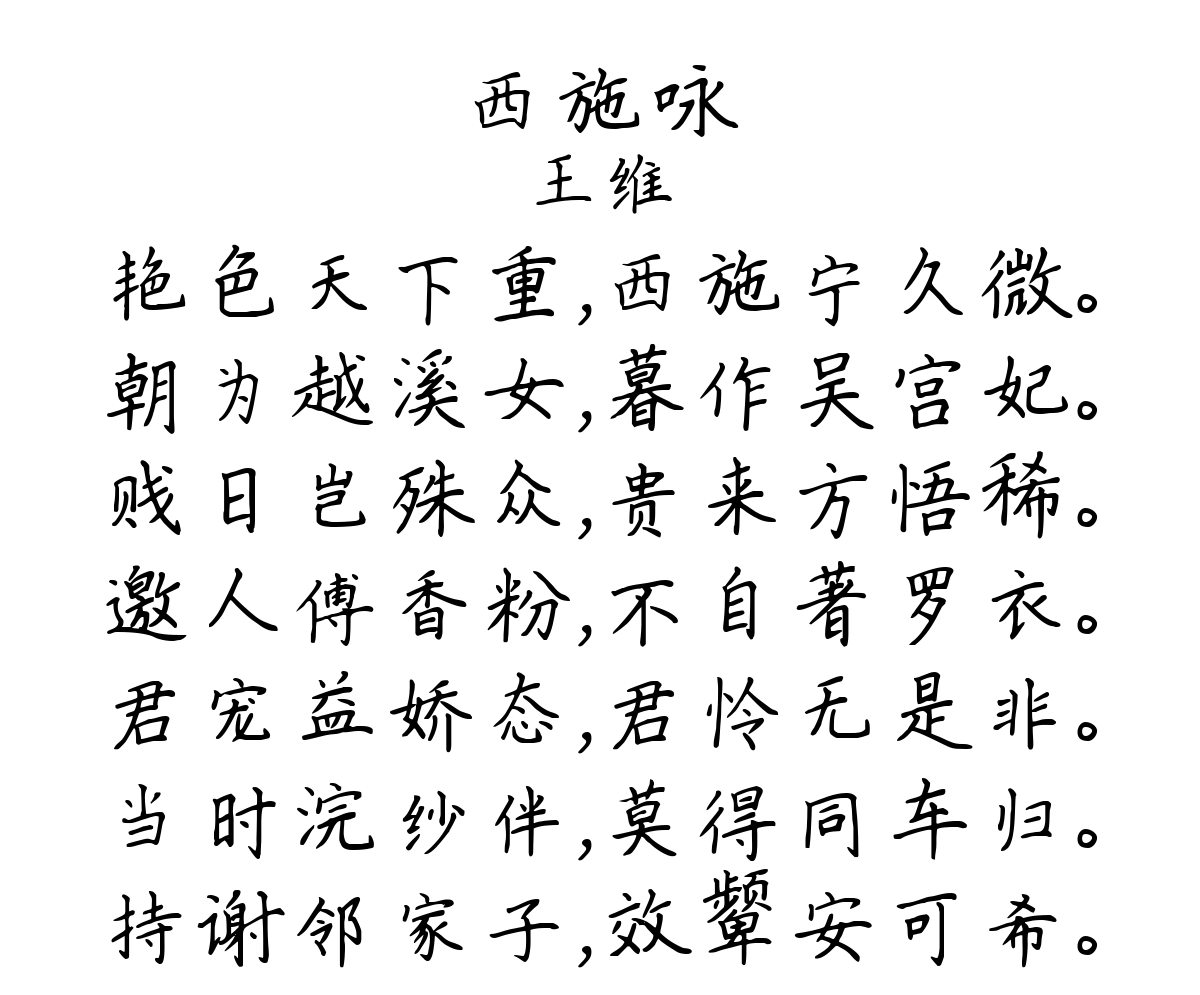 西施咏
王维
艳色天下重,西施宁久微。
朝为越溪女,暮作吴宫妃。
贱日岂殊众,贵来方悟稀。
邀人傅香粉,不自著罗衣。
君宠益娇态,君怜无是非。
当时浣纱伴,莫得同车归。
持谢邻家子,效颦安可希。